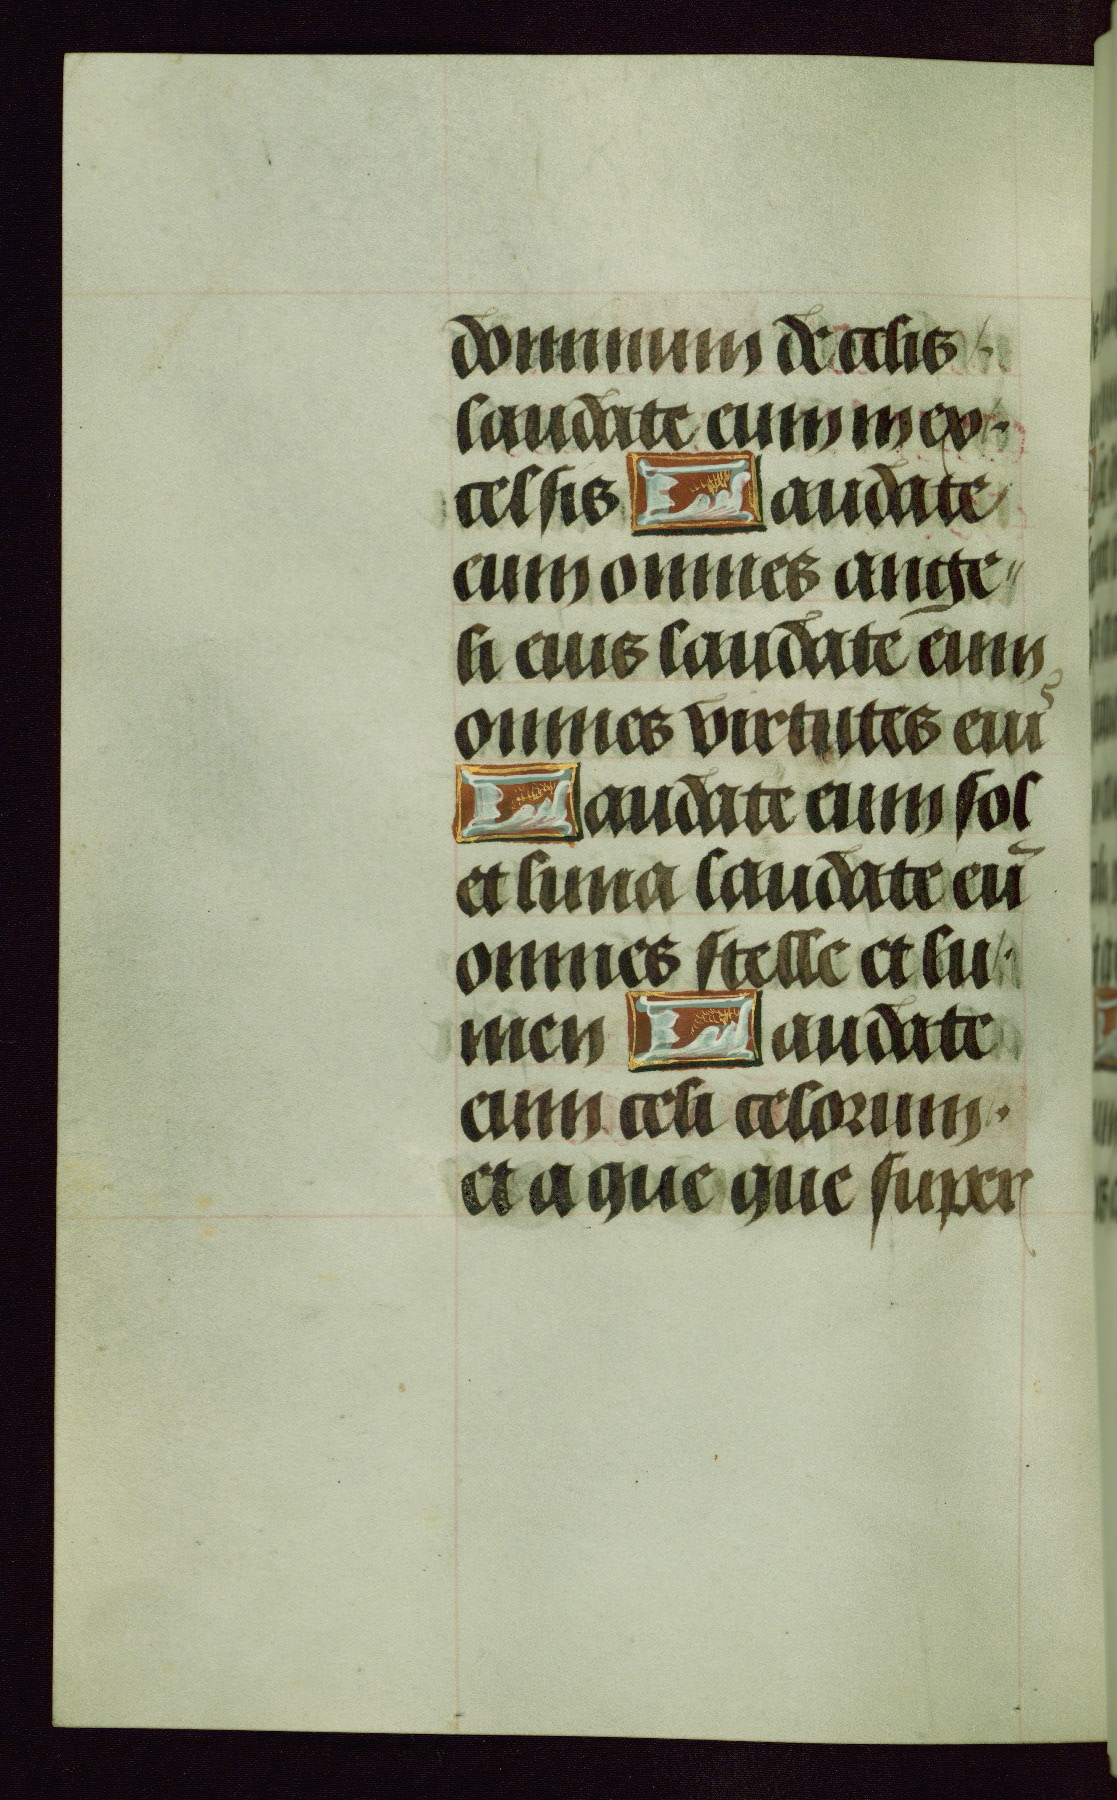 dominum de celis
laudate eum in ex-
celsis Laudate
eum omnes ange-
li eius laudate eum
omnes virtutes eius
Laudate eum sol
et luna laudate eū
omnes stelle et lu-
men Laudate
eum celi celorum.
et aque que super